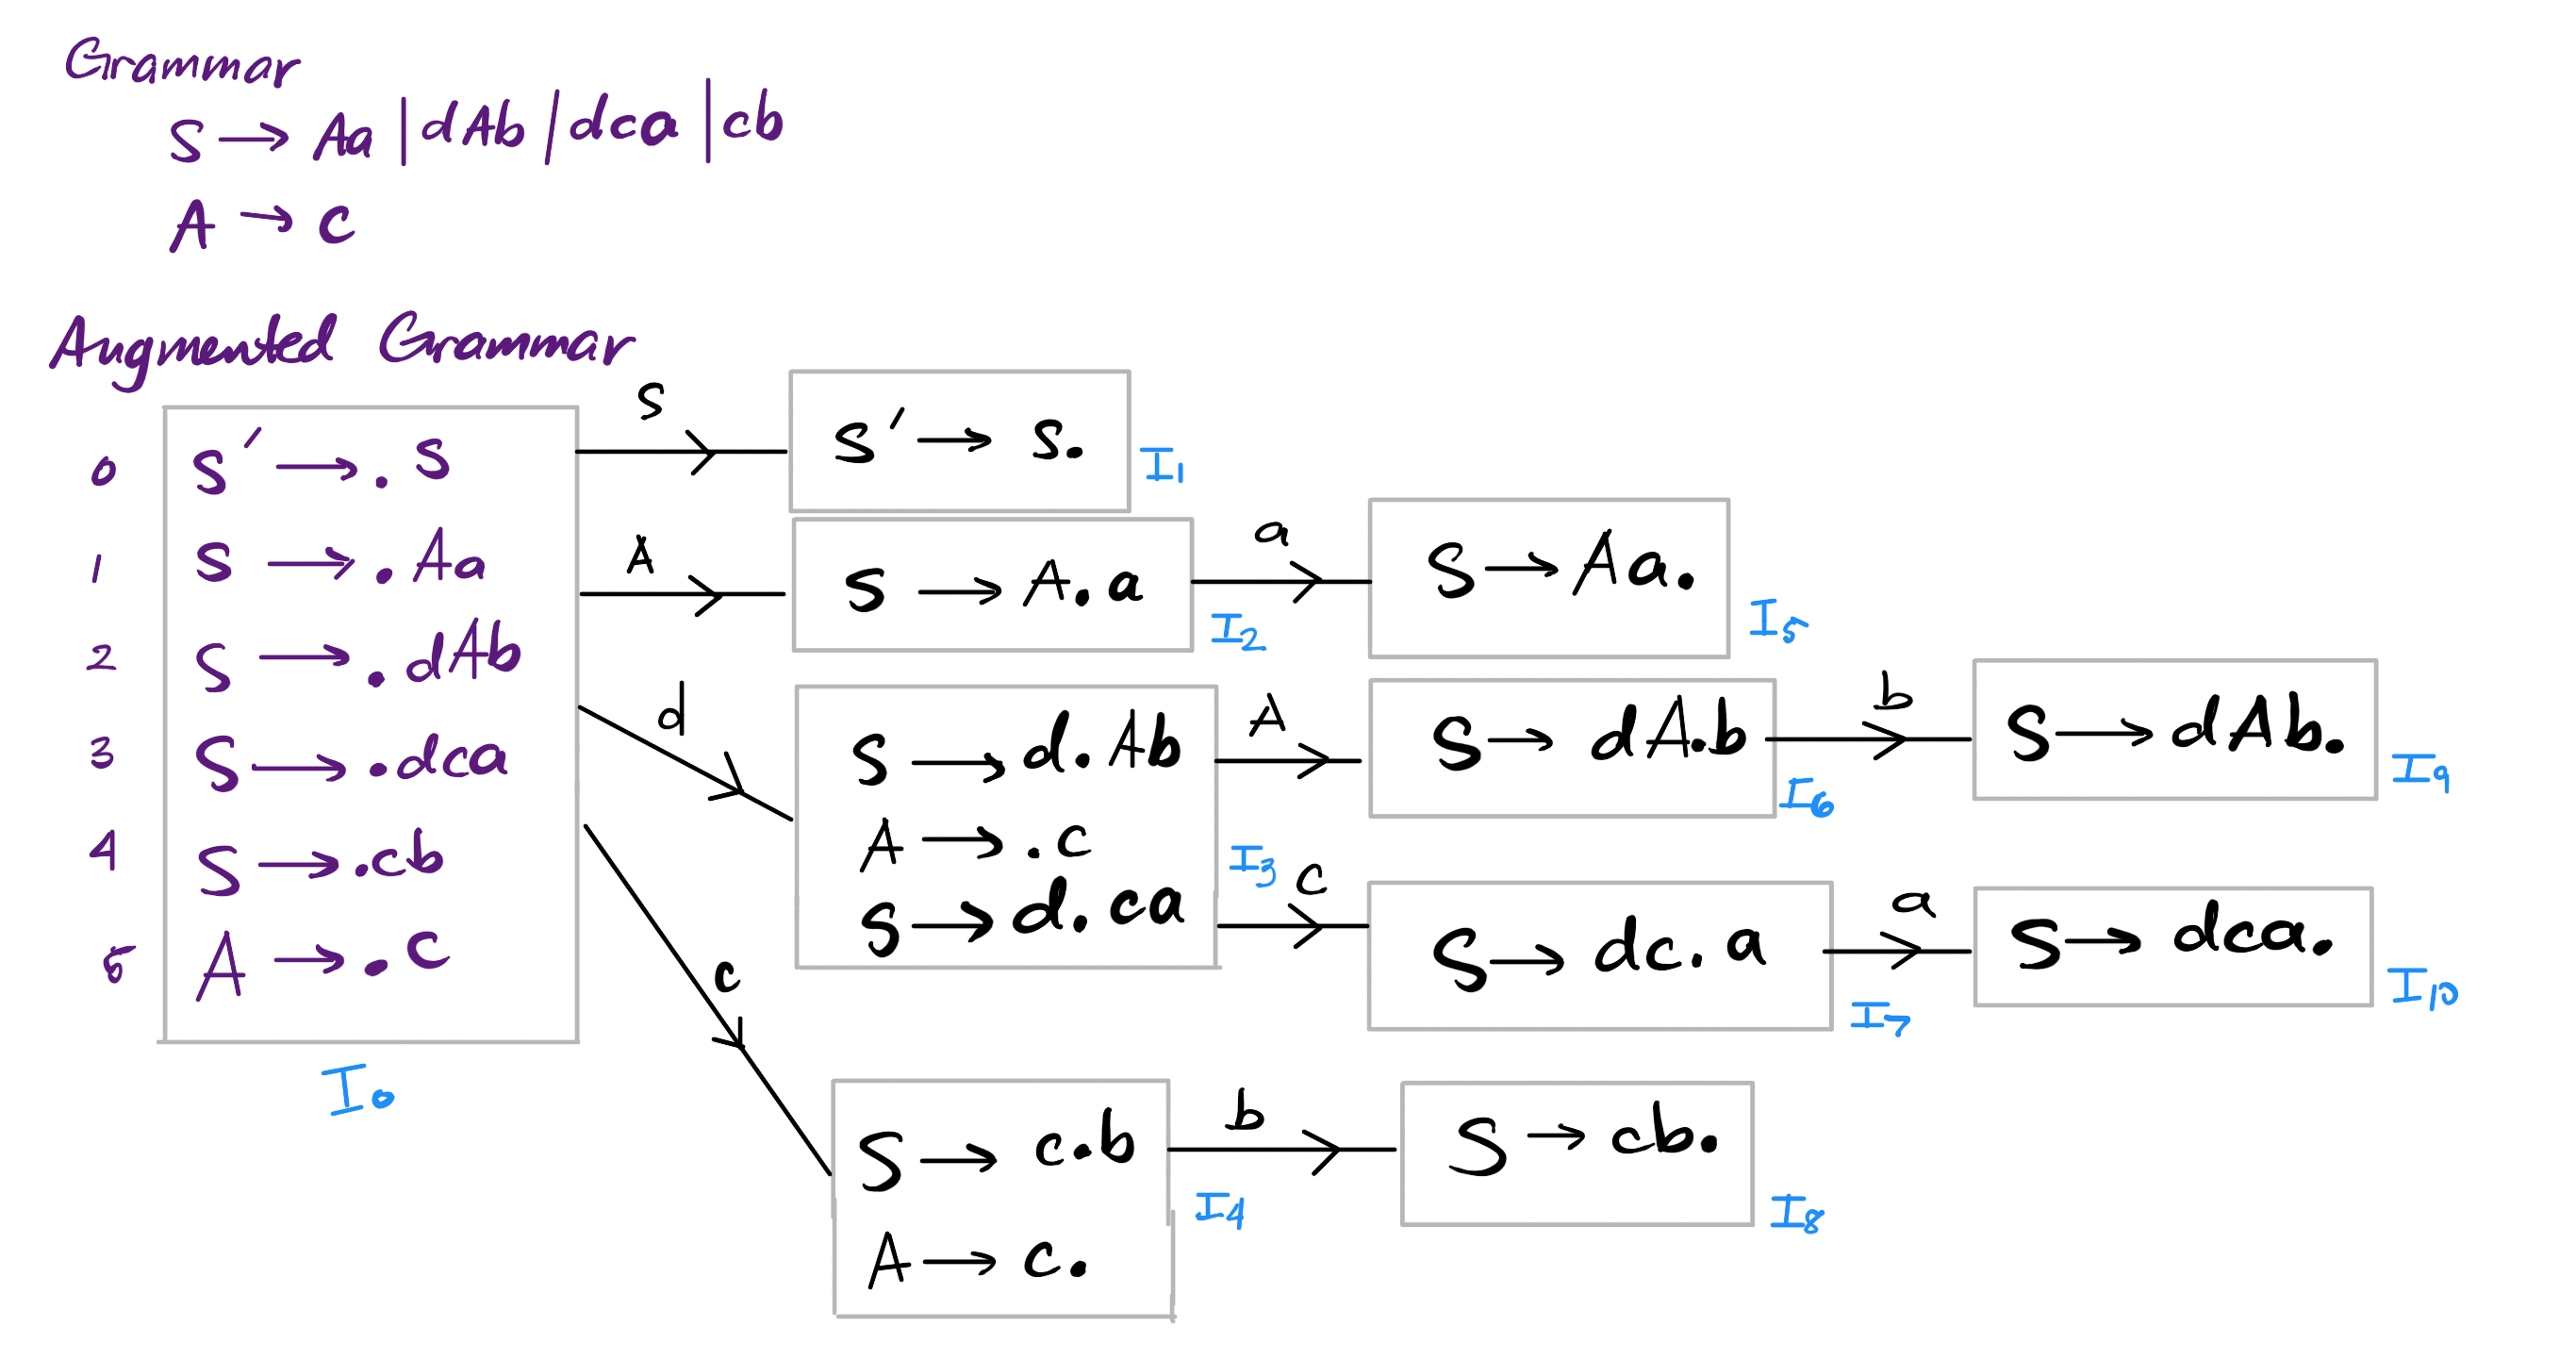 Grammar
S → Aa | dAb | dca | cb
A → c
Augmented Grammar
0 S' → . S
1 S → . Aa
2 S → . dAb
3 S → . dca
4 S → . cb
5 A → . c
I0
S
S' → S.
I1
A
S → A. a
I2
a
S → Aa.
I5
d
S → d. Ab
A → . c
S → d. ca
I3
A
S → dA.b
I6
b
S → dAb.
I9
c
S → dc. a
I7
a
S → dca.
I10
c
S → c.b
A → c.
I4
b
S → cb.
I8